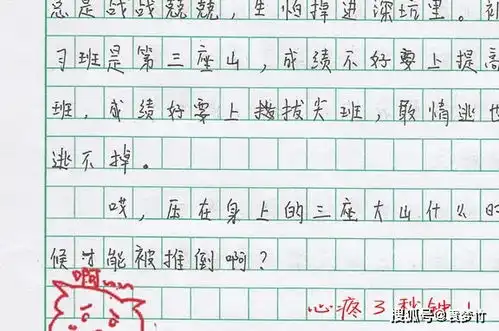 总是战战兢兢，生怕掉进深坑里。补
习班是第三座山，成绩不好要上提高
班，成绩好要上拨拔尖班，敢情逃也
逃不掉。
哎，压在身上的三座大山什么时
候才能被推倒啊？
啊
心疼3秒钟！
搜狐号@袁梦竹